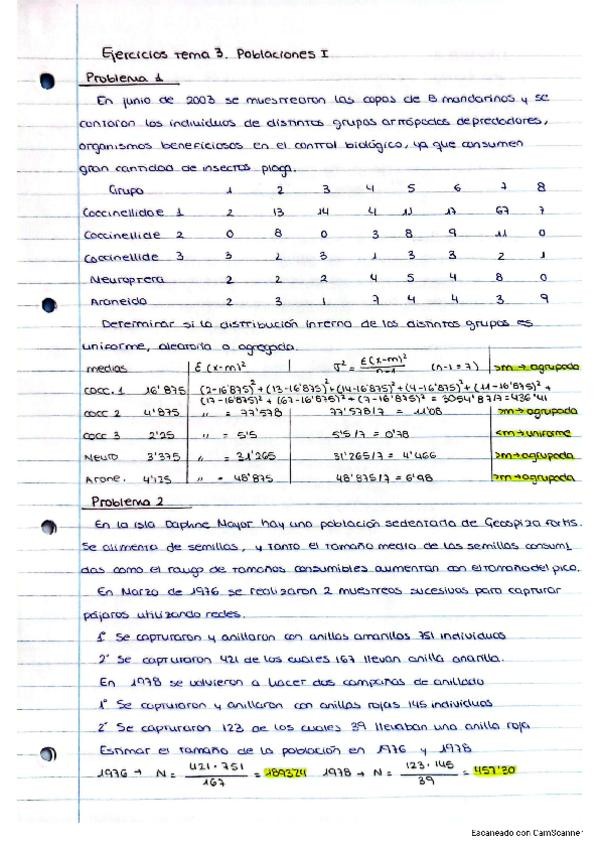 Ejercicios Tema 3. Poblaciones I
Problema 1
En junio de 2003 se muestrearon las copas de 8 mandarinos y se
contaron los individuos de distintos grupos artrópodos depredadores,
organismos beneficiosos en el control biológico, ya que consumen
gran cantidad de insectos plaga.
Grupo 1 2 3 4 5 6 7 8
Coccinellidae 1 2 13 14 4 11 17 67 7
Coccinellide 2 0 8 0 3 8 9 11 0
Coccinellide 3 3 2 3 1 3 3 2 1
Neuroptera 2 2 2 4 5 4 8 0
Araneido 2 3 1 7 4 4 3 9
Determinar si la distribución interna de los distintos grupos es
uniforme, aleatoria o agregada.
medias Σ(x-m)² σ² = Σ(x-m)²/n-1 (n-1=7) >m→agrupada
cocc. 1 16'875 (2-16'875)²+(13-16'875)²+(14-16'875)²+(4-16'875)²+(11-16'875)²+
(17-16'875)²+(67-16'875)²+(7-16'875)² = 3054'87/7=436'41
cocc 2 4'875 " = 77'578 77'578/7 = 11'08 >m→agrupada
cocc 3 2'25 " = 5'5 5'5/7 = 0'78 <m→uniforme
Neuro 3'375 " = 31'265 31'265/7 = 4'466 >m→agrupada
Arane. 4'125 " = 48'875 48'875/7 = 6'98 >m→agrupada
Problema 2
En la isla Daphne Mayor hay una población sedentaria de Geospiza fortis.
Se alimenta de semillas, y tanto el tamaño medio de las semillas consumi
das como el rango de tamaños consumibles aumentan con el tamaño del pico.
En Marzo de 1976 se realizaron 2 muestreos sucesivos para capturar
pájaros utilizando redes.
1º Se capturaron y anillaron con anillas amarillas 751 individuos
2º Se capturaron 421 de los cuales 167 llevan anilla amarilla.
En 1978 se volvieron a hacer dos campañas de anillado
1º Se capturaron y anillaron con anillas rojas 145 individuos
2º Se capturaron 123 de los cuales 39 llevaban una anilla roja
Estimar el tamaño de la población en 1976 y 1978
1976 → N = 421·751/167 = 1893'24 1978 → N = 123·145/39 = 457'30
Escaneado con CamScanner